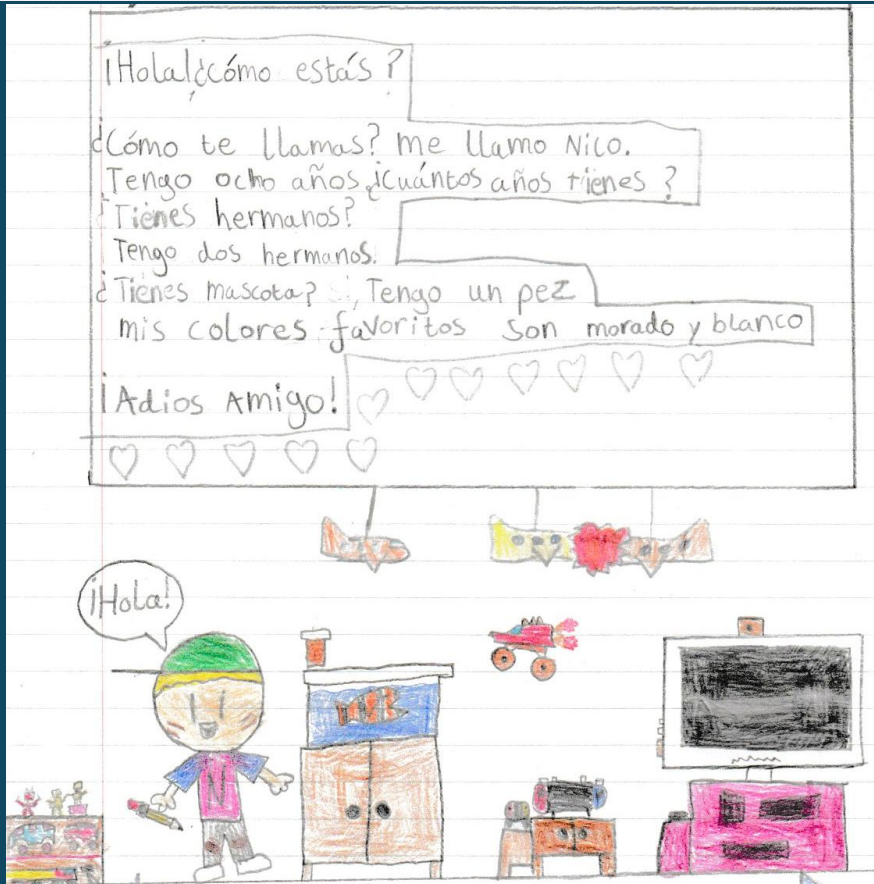 ¡Hola!¿cómo estás?
¿Cómo te llamas? me llamo Nico.
Tengo ocho años ¿Cuántos años tienes?
¿Tienes hermanos?
Tengo dos hermanos.
¿Tienes mascota? si, Tengo un pez
mis colores favoritos son morado y blanco
¡Adios Amigo!
¡Hola!
N